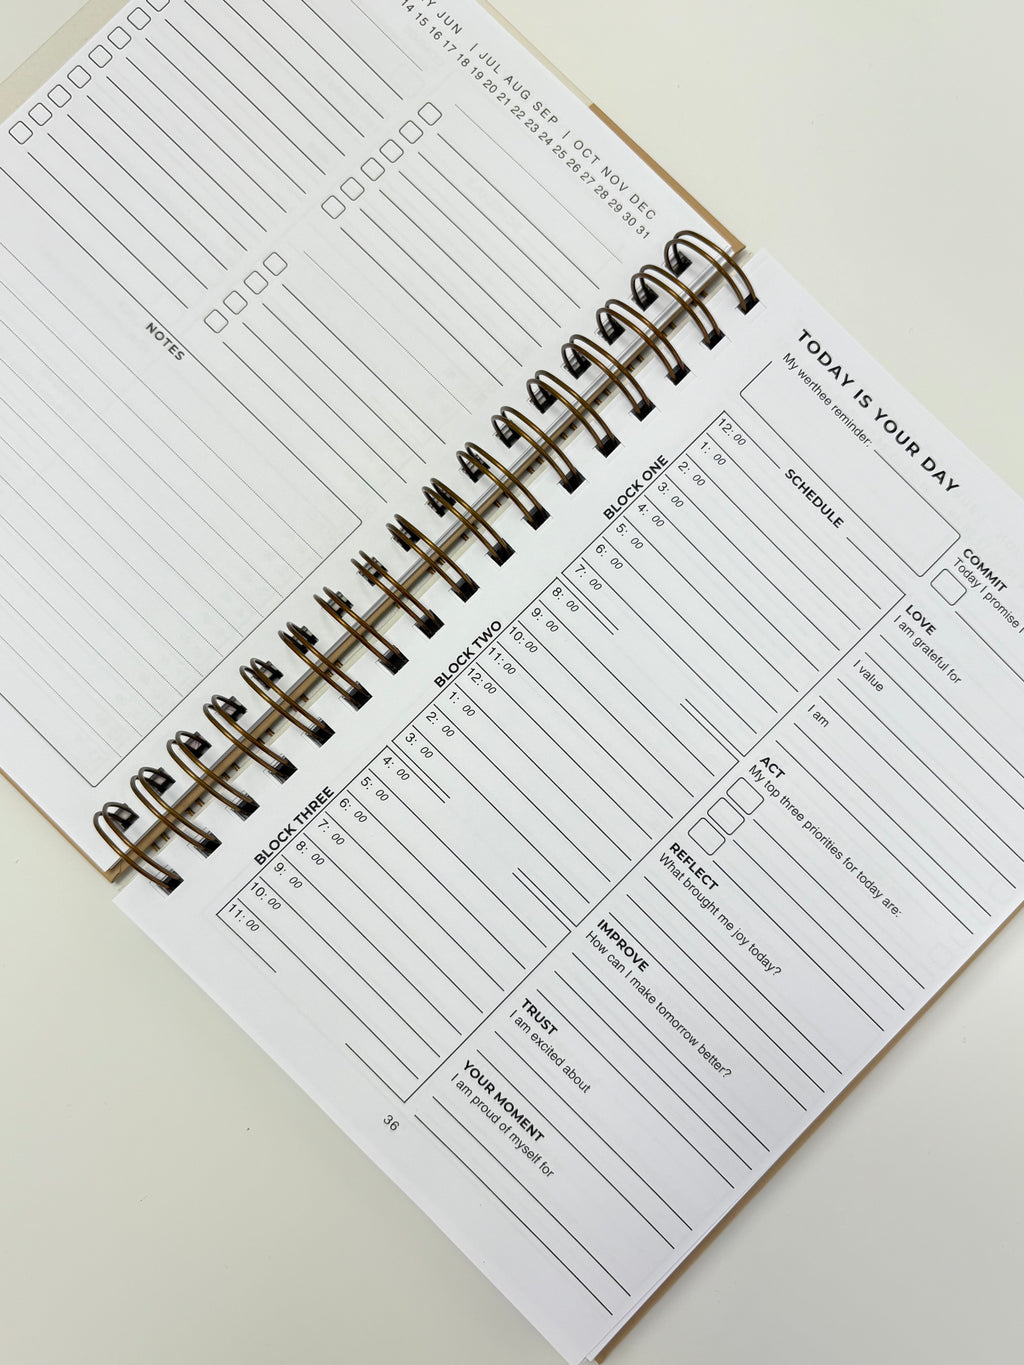 Y JUN | JUL AUG SEP | OCT NOV DEC
14 15 16 17 18 19 20 21 22 23 24 25 26 27 28 29 30 31
NOTES
TODAY IS YOUR DAY
My werthee reminder:
SCHEDULE
BLOCK ONE
12:00
1:00
2:00
3:00
4:00
5:00
6:00
7:00
BLOCK TWO
8:00
9:00
10:00
11:00
12:00
1:00
2:00
3:00
BLOCK THREE
4:00
5:00
6:00
7:00
8:00
9:00
10:00
11:00
COMMIT
Today I promise I
LOVE
I am grateful for
I value
I am
ACT
My top three priorities for today are:
REFLECT
What brought me joy today?
IMPROVE
How can I make tomorrow better?
TRUST
I am excited about
YOUR MOMENT
I am proud of myself for
36